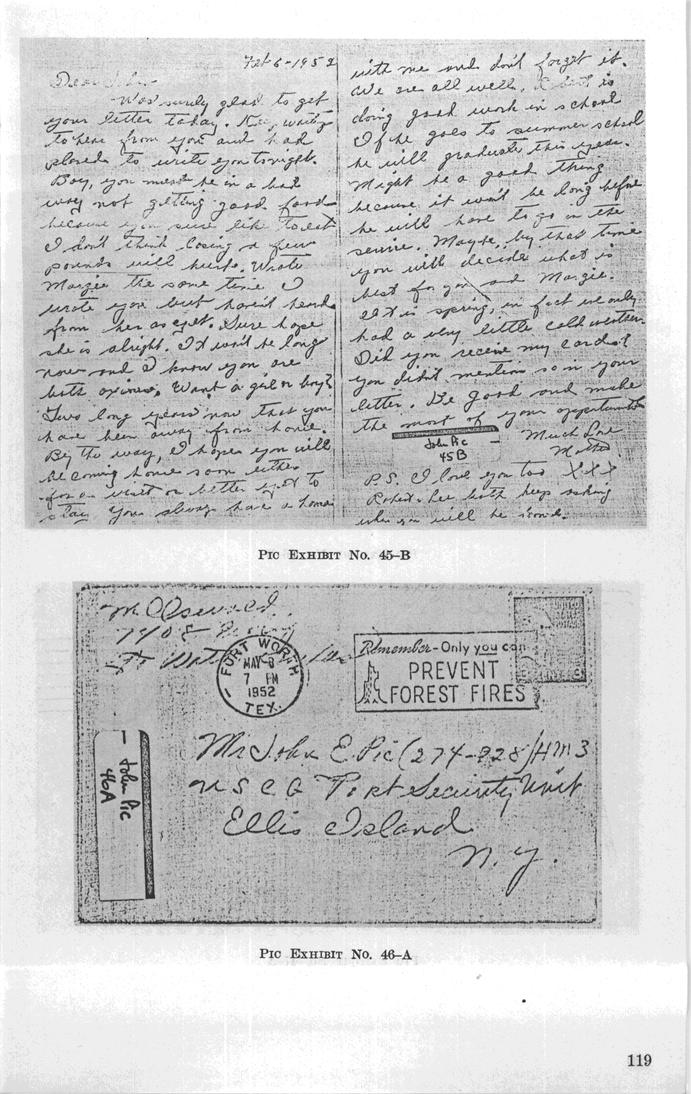 Feb 6-1952
Dear John
Was surely glad to get
your letter today. waiting
to hear from you and had
planed to write you tonight.
Boy, you must be in a bad
way not getting good food
because you sure like to eat
I don't think losing a few
pounds will hurt. Wrote
Margie the same time I
wrote you but haven't heard
from her as yet. Sure hope
she is alright. It won't be long
now and I know you are
both Want a girl or boy?
Two long years now that you
have been away from home.
By the way, I hope you will
be coming home soon either
for a visit or better yet to
stay You always have a home
with me and don't forget it.
We are all well. is
doing good work in school
If he goes to summer school
he will graduate this year.
Might be a good thing
because it won't be long before
he will have to go in the
service. Maybe, by that time
you will decide what is
best for you and Margie.
It is spring, in fact we only
had a very little cold weather.
Did you receive my cards?
you didn't mention so in your
letter. Be good and make
the most of your opportunities
Much Love
Mother
John Pic
45B
P.S. I love you too XXX
Robert-Lee both keep asking
when you will be
PIC EXHIBIT No. 45-B
M Oswald
7408
Ft
FORT WORTH
MAY-8
7 PM
1952
TEX.
Remember-Only you can
PREVENT
FOREST FIRES
John Pic
46A
Mr John E. Pic (274-928) HM3
U S C G Port Security Unit
Ellis Island
N. Y.
PIC EXHIBIT No. 46-A
119